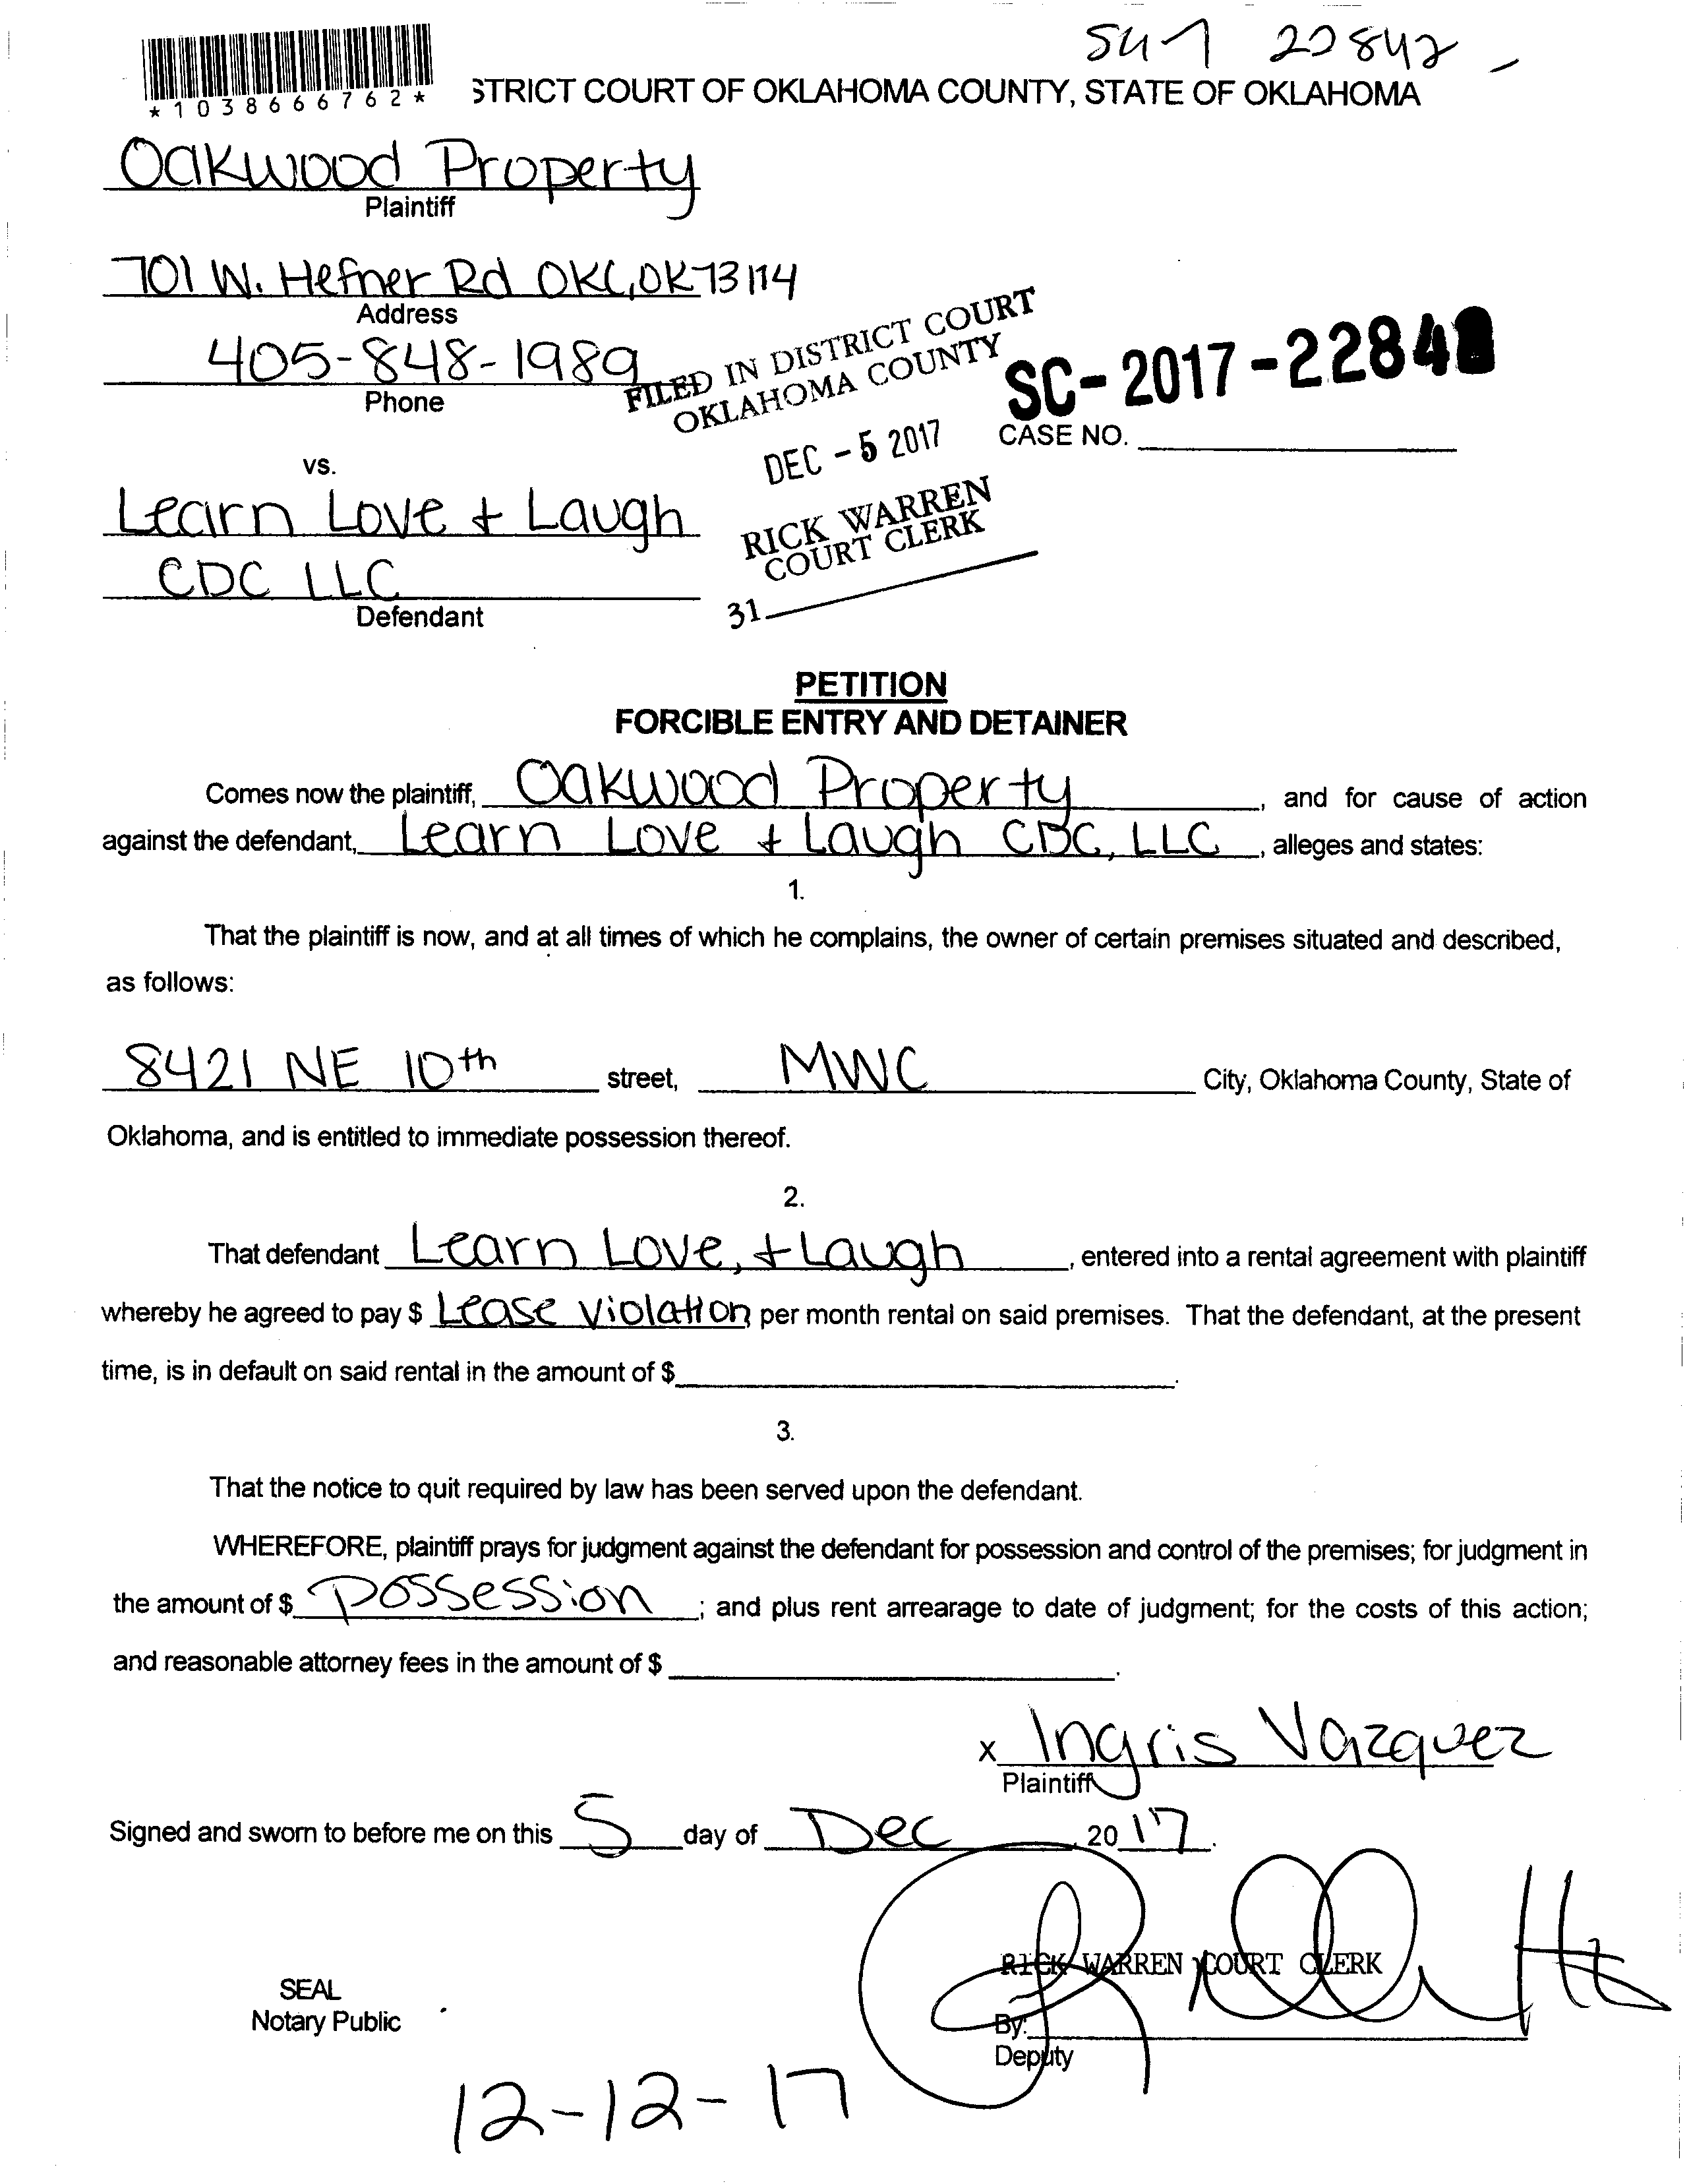 22842
*1038666762*
STRICT COURT OF OKLAHOMA COUNTY, STATE OF OKLAHOMA
Oakwood Property
Plaintiff
701 W. Hefner Rd OKC, OK 73114
Address
405-848-1989
Phone
FILED IN DISTRICT COURT
OKLAHOMA COUNTY
DEC - 5 2017
RICK WARREN
COURT CLERK
31
SC-2017-2284
CASE NO.
vs.
Learn Love + Laugh
CDC LLC
Defendant
PETITION
FORCIBLE ENTRY AND DETAINER
Comes now the plaintiff, Oakwood Property, and for cause of action
against the defendant, Learn Love + Laugh CDC, LLC, alleges and states:
1.
That the plaintiff is now, and at all times of which he complains, the owner of certain premises situated and described,
as follows:
8421 NE 10th street, MWC City, Oklahoma County, State of
Oklahoma, and is entitled to immediate possession thereof.
2.
That defendant Learn Love, + Laugh, entered into a rental agreement with plaintiff
whereby he agreed to pay $ Lease violation per month rental on said premises. That the defendant, at the present
time, is in default on said rental in the amount of $
3.
That the notice to quit required by law has been served upon the defendant.
WHEREFORE, plaintiff prays for judgment against the defendant for possession and control of the premises; for judgment in
the amount of $ Possession; and plus rent arrearage to date of judgment; for the costs of this action;
and reasonable attorney fees in the amount of $
x Ingris Vazquez
Plaintiff
Signed and sworn to before me on this 5 day of Dec 2017.
RICK WARREN COURT CLERK
SEAL
Notary Public
By:
Deputy
12-12-17